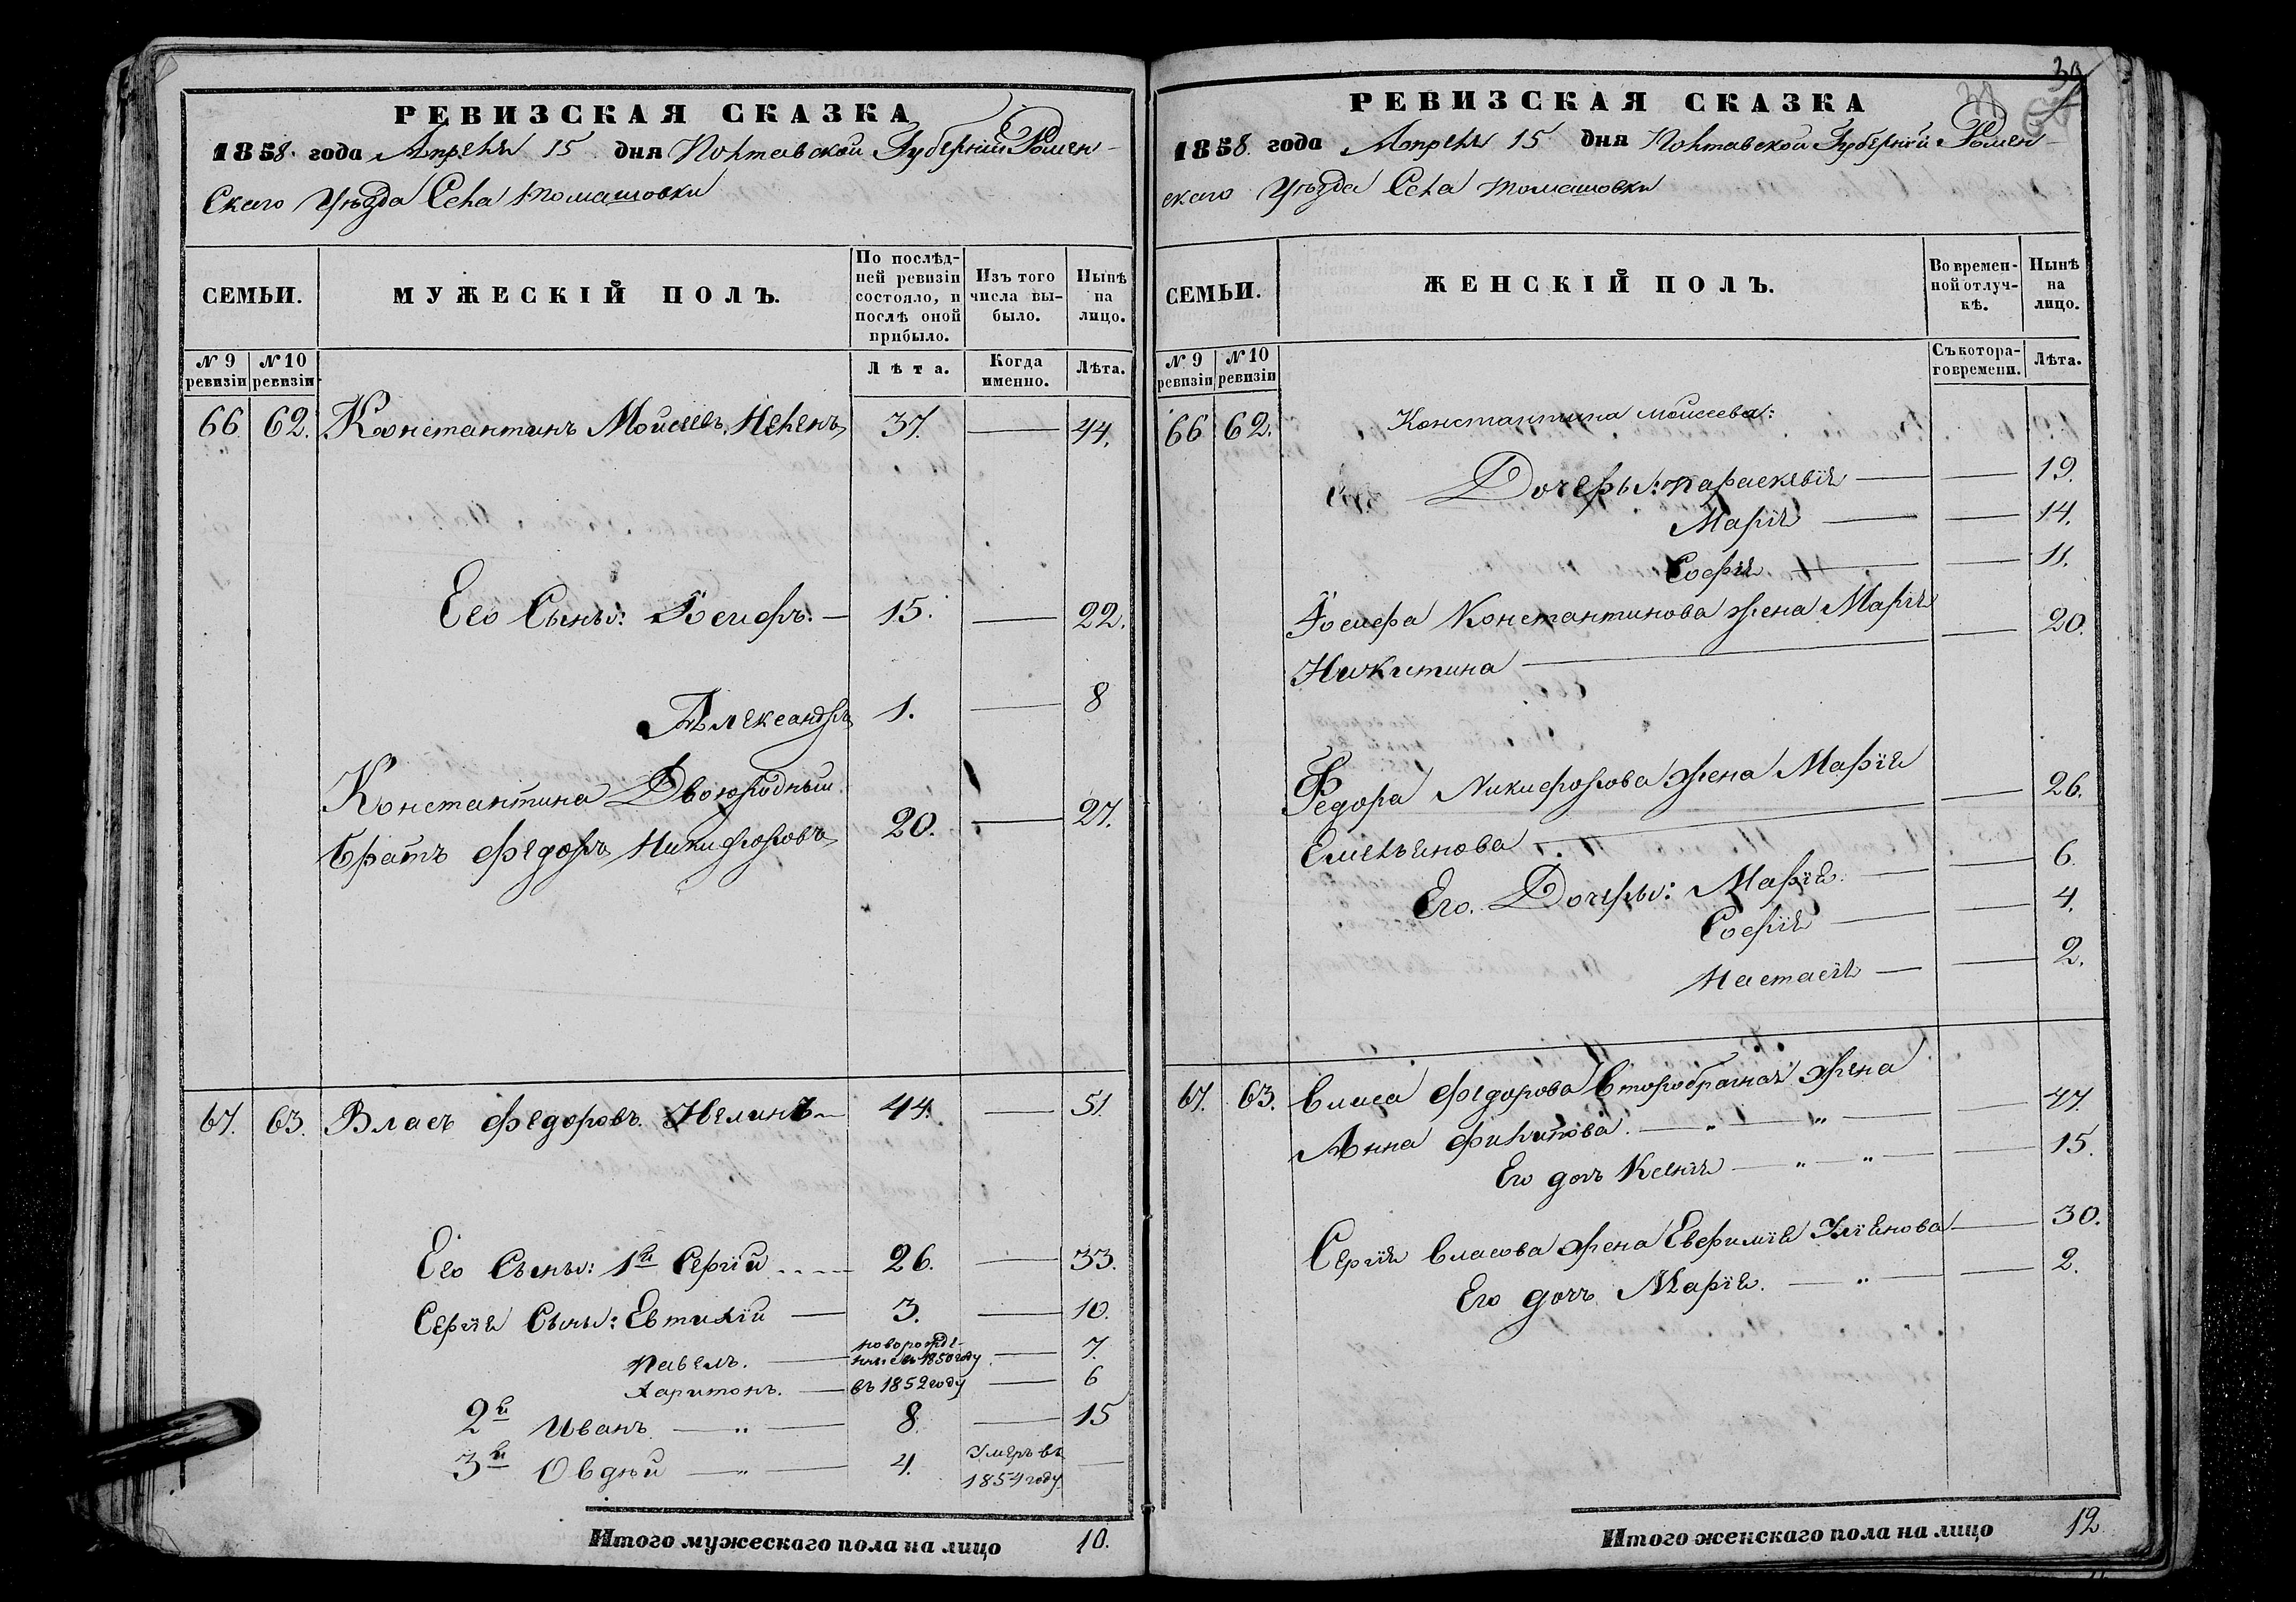 РЕВИЗСКАЯ СКАЗКА
1858 года Апреля 15 дня Полтавской Губерніи Ромен-
скаго Уѣзда Села Томашовки
СЕМЬИ.
МУЖЕСКІЙ ПОЛЪ.
По послѣд-
ней ревизіи
состояло, и
послѣ оной
прибыло.
Изъ того
числа вы-
было.
Нынѣ
на
лицо.
№ 9 ревизіи
№ 10 ревизіи
Лѣта.
Когда именно.
Лѣта.
66. 62. Константинъ Мойсеевъ 37. — 44.
Его Сыны: Іосифъ. — 15. — 22.
Александръ 1. — 8
Константина Двоюродный
братъ Федоръ Никифоровъ 20. — 27.
67. 63. Власъ Федоровъ 44. — 51.
Его Сыны: 1й Сергій 26. — 33.
Сергія Сыны: Евтихій — 3. — 10.
Павелъ. — новорожде-
ные въ 1850 году — 7.
Харитонъ. — въ 1852 году — 6
2й Иванъ — „ — 8. — 15
3й Овдѣй — „ — 4. Умеръ въ
1854 году. —
Итого мужескаго пола на лицо 10.
39
РЕВИЗСКАЯ СКАЗКА
1858. года Апреля 15 дня Полтавской Губерніи Ромен-
скаго Уѣзда Села Томашовки
СЕМЬИ.
ЖЕНСКІЙ ПОЛЪ.
Во времен-
ной отлуч-
кѣ.
Нынѣ
на
лицо.
№ 9 ревизіи
№ 10 ревизіи
Съ котора-
го времени.
Лѣта.
66 62. Константина Мойсеева:
Дочеры: Параскевія — — 19.
Марія — — 14.
Софія — — 11.
Іосифа Константинова жена Марія
Никитина — — 20.
Федора Никифорова жена Марія
Емельянова — — 26.
Его Дочеры: Марія — — 6.
Софія — — 4.
Настасія — — 2.
67. 63. Власа Федорова второбрачная жена
Анна Филипова. — „ — „ — — 47.
Его дочъ Ксенія — „ — „ — — 15.
Сергія Власова жена Евфимія Уліянова — 30.
Его дочъ Марія. — „ — — 2.
Итого женскаго пола на лицо 12.